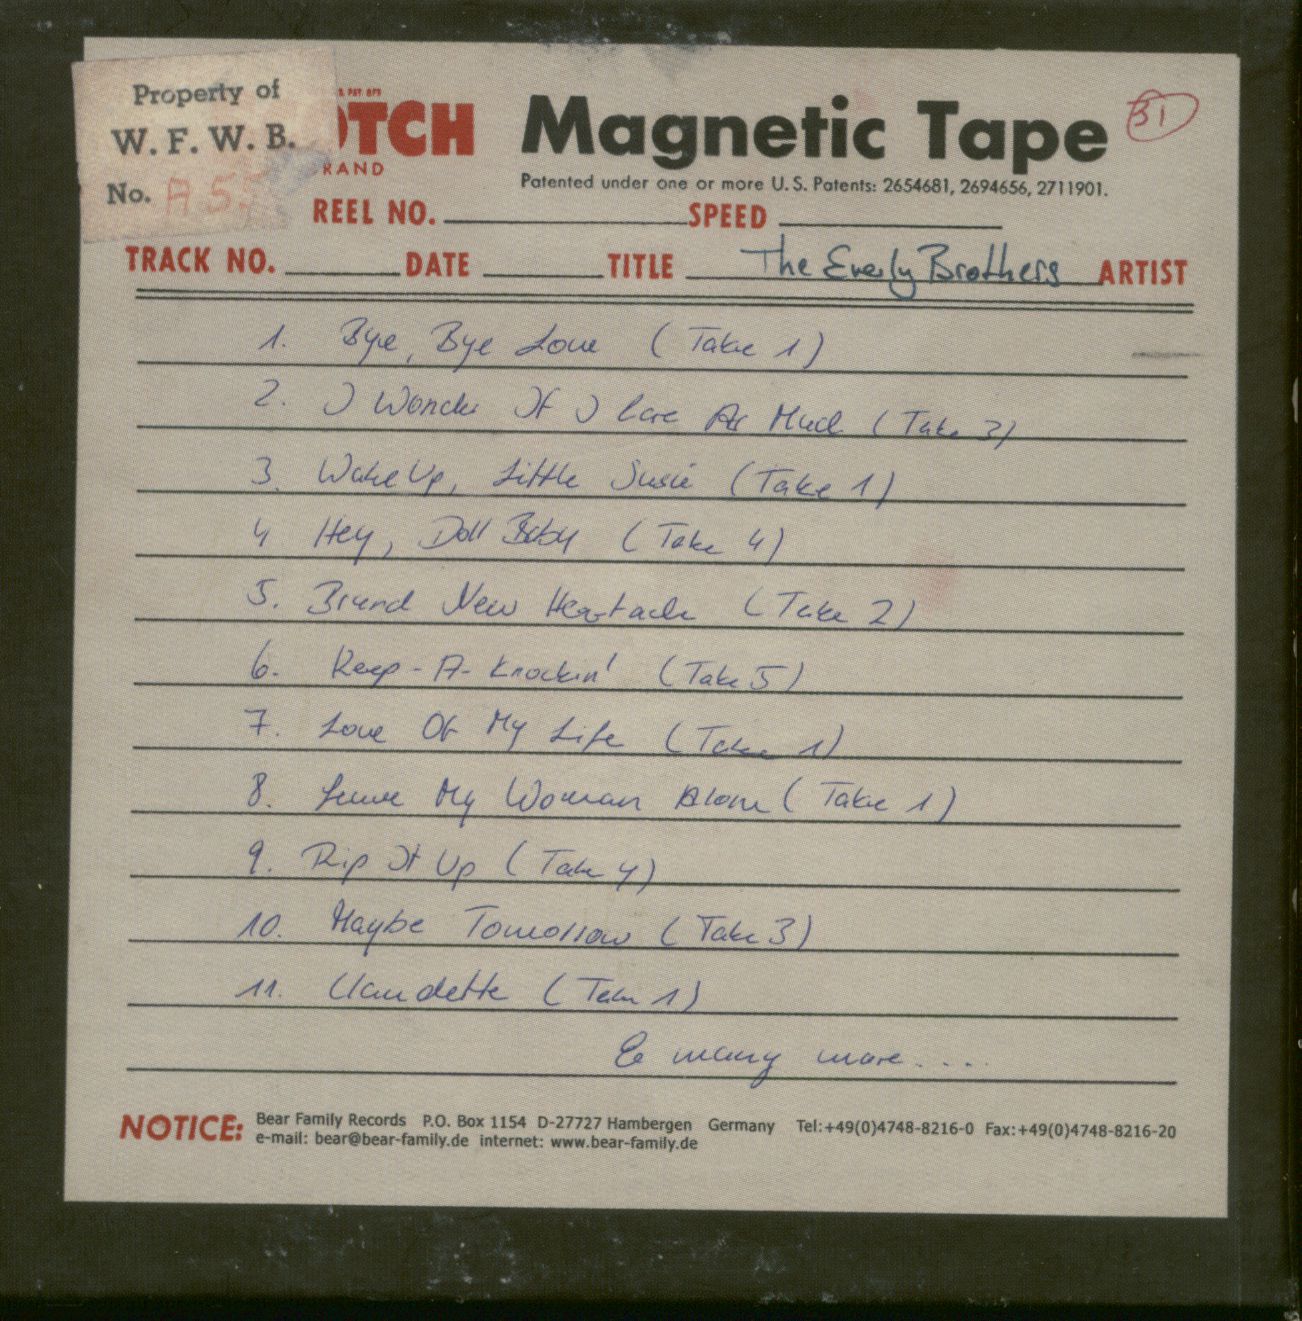 Property of
W. F. W. B.
No. A 55
OTCH Magnetic Tape 31
RAND
Patented under one or more U.S. Patents: 2654681, 2694656, 2711901.
REEL NO. SPEED
TRACK NO. DATE TITLE The Everly Brothers ARTIST
1. Bye, Bye Love (Take 1)
2. I Wonder If I Care As Much (Take 3)
3. Wake Up, Little Susie (Take 1)
4 Hey, Doll Baby (Take 4)
5. Brand New Heartache (Take 2)
6. Keep-A-Knockin' (Take 5)
7. Love Of My Life (Take 1)
8. Leave My Woman Alone (Take 1)
9. Rip It Up (Take 4)
10. Maybe Tomorrow (Take 3)
11. Claudette (Take 1)
& many more....
NOTICE: Bear Family Records P.O. Box 1154 D-27727 Hambergen Germany Tel:+49(0)4748-8216-0 Fax:+49(0)4748-8216-20
e-mail: bear@bear-family.de internet: www.bear-family.de